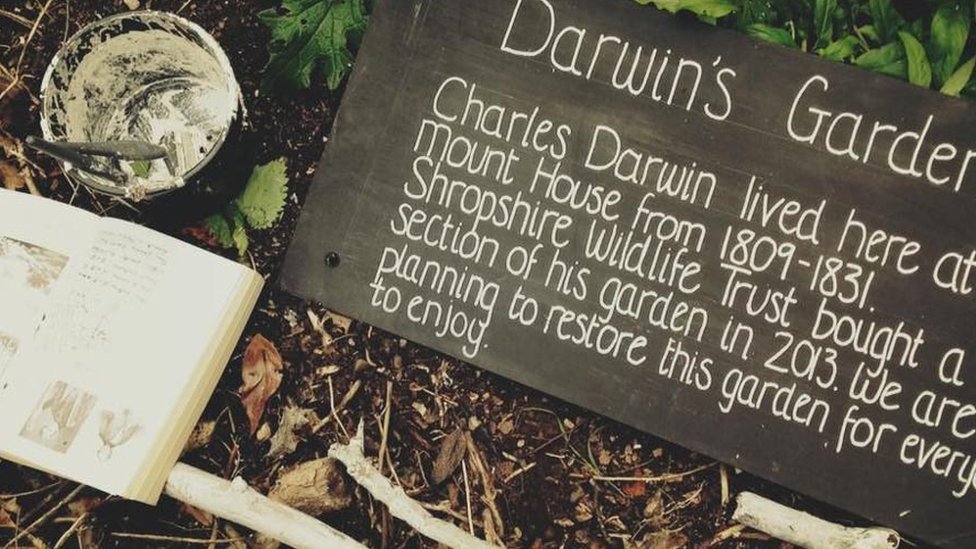 Darwin's Garden
Charles Darwin lived here at
Mount House from 1809-1831.
Shropshire Wildlife Trust bought a
section of his garden in 2013. We are
planning to restore this garden for every
to enjoy.